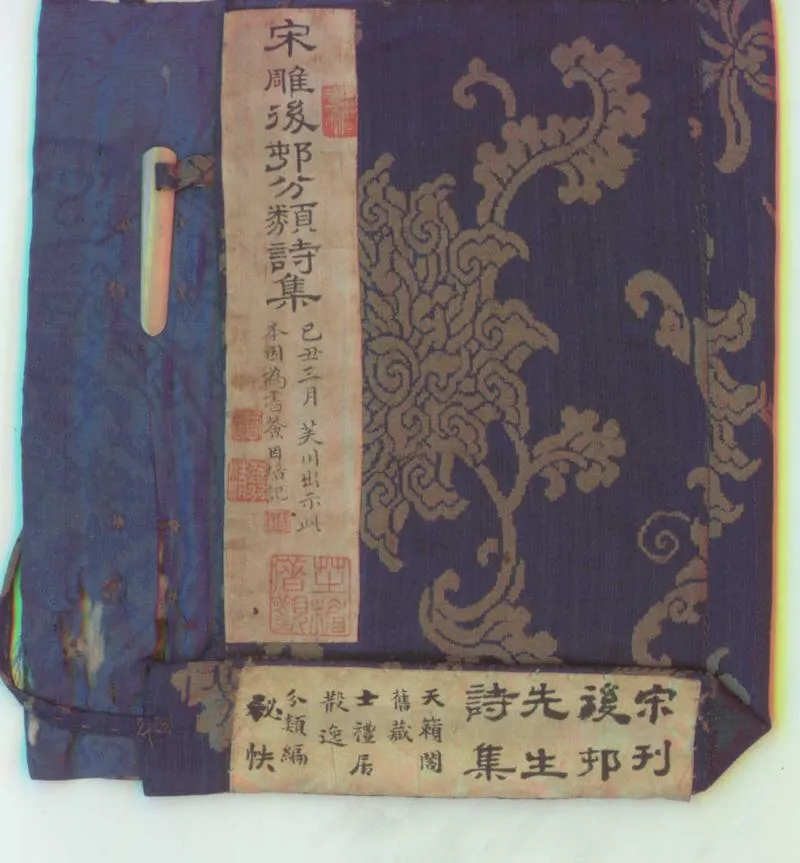 宋雕後邨分類詩集
己丑三月芙川出示此
本因為書簽因培記
宋刊
後邨
先生
詩集
天籟閣
舊藏
士禮居
散逸
分類編
秘帙